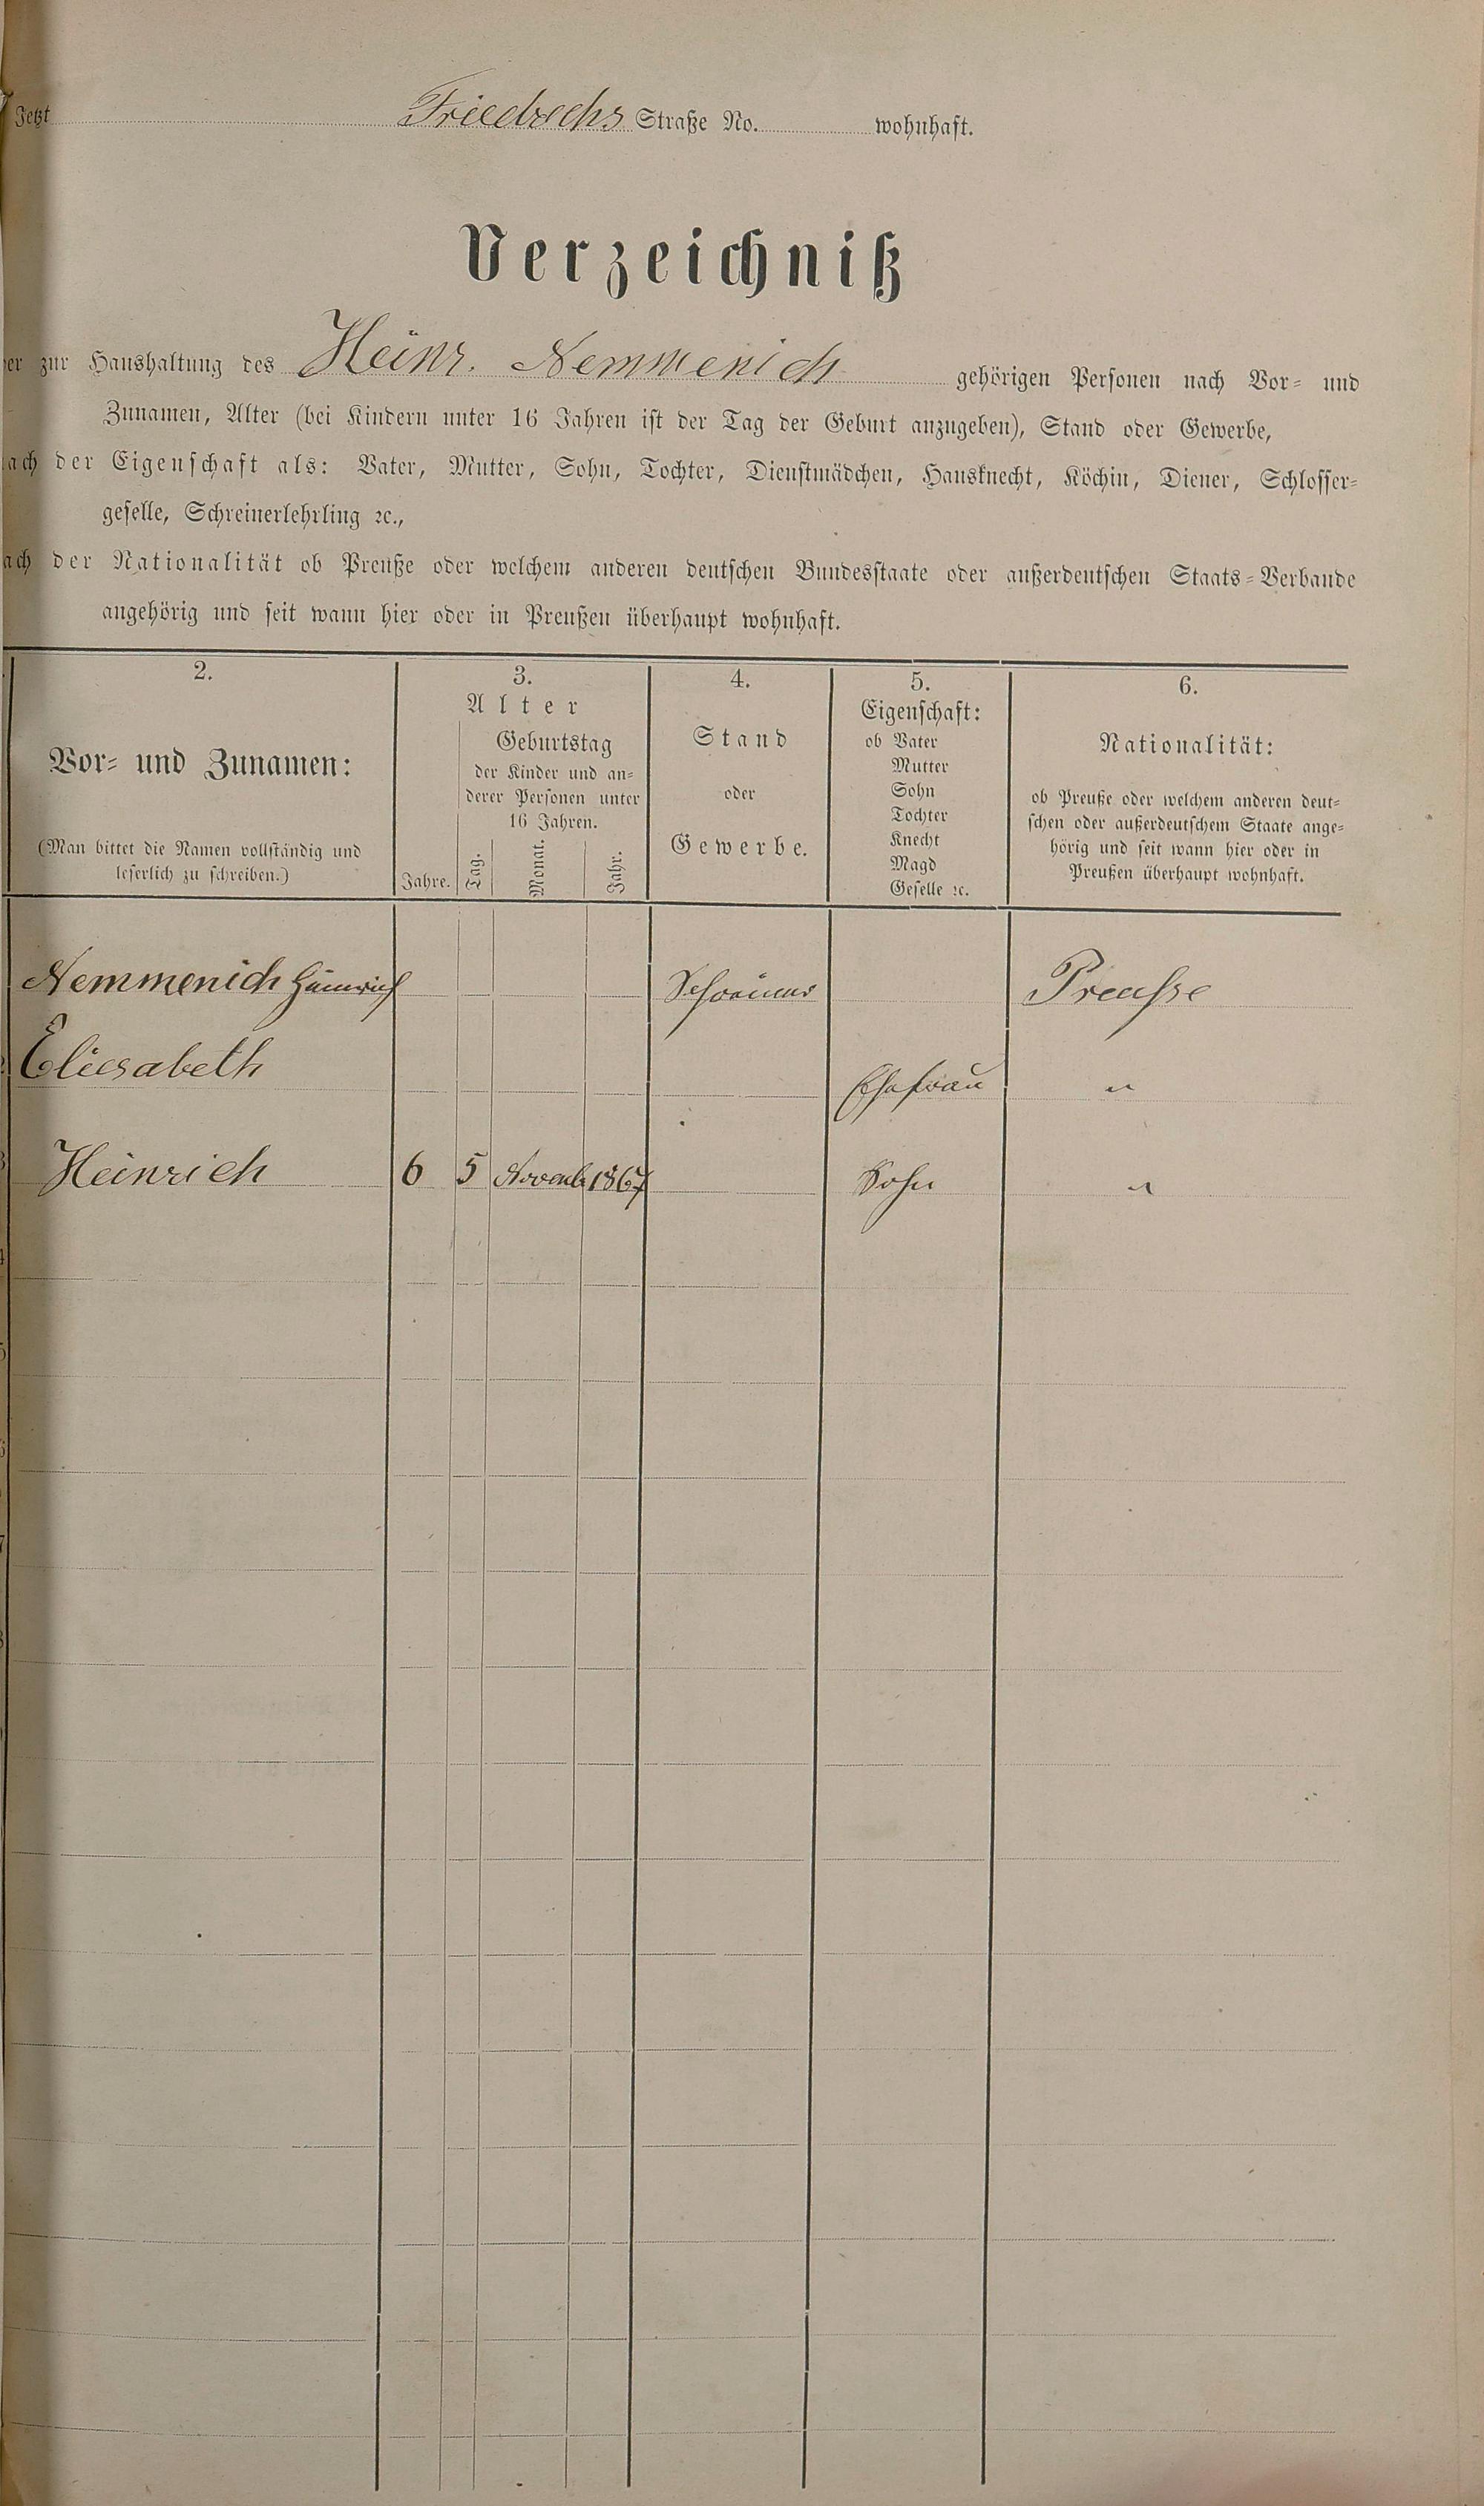 Jetzt Friedrichs Straße No. wohnhaft.
Verzeichniß
er zur Haushaltung des Heinr. Nemmenich gehörigen Personen nach Vor- und
Zunamen, Alter (bei Kindern unter 16 Jahren ist der Tag der Geburt anzugeben), Stand oder Gewerbe,
ach der Eigenschaft als: Vater, Mutter, Sohn, Tochter, Dienstmädchen, Hausknecht, Köchin, Diener, Schlosser-
geselle, Schreinerlehrling ꝛc.,
ach der Nationalität ob Preuße oder welchem anderen deutschen Bundesstaate oder außerdeutschen Staats-Verbande
angehörig und seit wann hier oder in Preußen überhaupt wohnhaft.
2.
Vor- und Zunamen:
(Man bittet die Namen vollständig und
leserlich zu schreiben.)
3.
Alter
Geburtstag
der Kinder und an-
derer Personen unter
16 Jahren.
Jahre. Tag. Monat. Jahr.
4.
Stand
oder
Gewerbe.
5.
Eigenschaft:
ob Vater
Mutter
Sohn
Tochter
Knecht
Magd
Geselle ꝛc.
6.
Nationalität:
ob Preuße oder welchem anderen deut-
schen oder außerdeutschem Staate ange-
hörig und seit wann hier oder in
Preußen überhaupt wohnhaft.
Nemmenich Heinrich Schreiner Preusse
Eliesabeth Ehefrau "
Heinrich 6 5 Novemb 1867 Sohn "